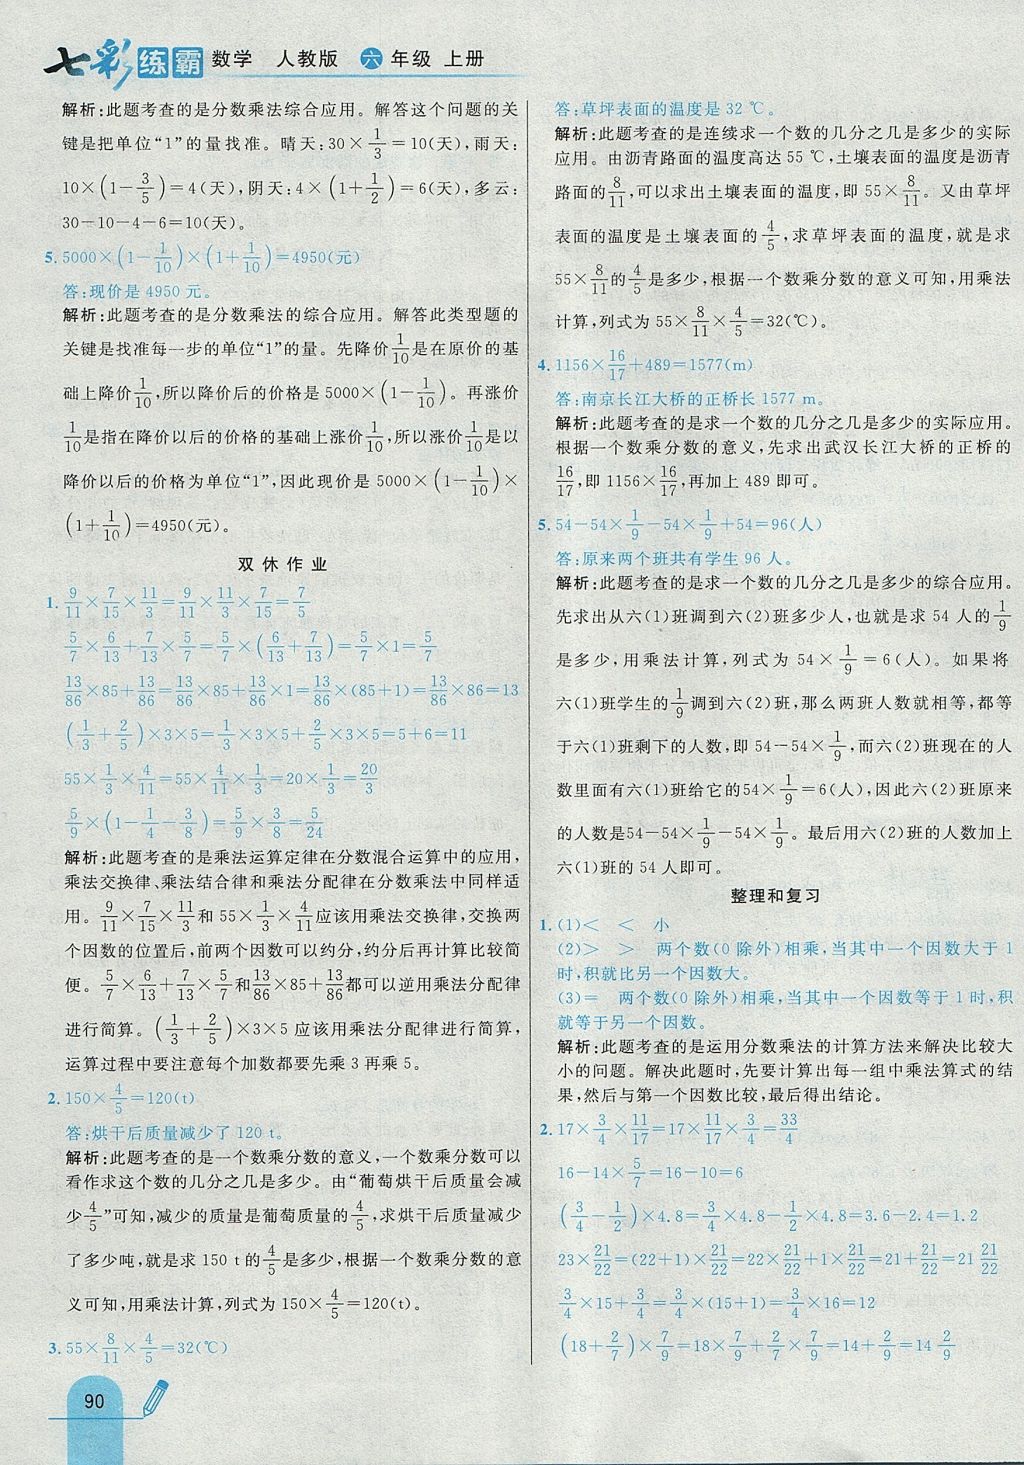 七彩练霸 数学 人教版 六年级 上册
解析:此题考查的是分数乘法综合应用。解答这个问题的关
键是把单位“1”的量找准。晴天:30×1/3=10(天),雨天:
10×(1-3/5)=4(天),阴天:4×(1+1/2)=6(天),多云:
30-10-4-6=10(天)。
5. 5000×(1-1/10)×(1+1/10)=4950(元)
答:现价是 4950 元。
解析:此题考查的是分数乘法的综合应用。解答此类型题的
关键是找准每一步的单位“1”的量。先降价1/10是在原价的基
础上降价1/10,所以降价后的价格是 5000×(1-1/10)。再涨价
1/10是指在降价以后的价格的基础上涨价1/10,所以涨价1/10是以
降价以后的价格为单位“1”,因此现价是 5000×(1-1/10)×
(1+1/10)=4950(元)。
双休作业
1. 9/11×7/15×11/3=9/11×11/3×7/15=7/5
5/7×6/13+7/13×5/7=5/7×(6/13+7/13)=5/7×1=5/7
13/86×85+13/86=13/86×85+13/86×1=13/86×(85+1)=13/86×86=13
(1/3+2/5)×3×5=1/3×3×5+2/5×3×5=5+6=11
55×1/3×4/11=55×4/11×1/3=20×1/3=20/3
5/9×(1-1/4-3/8)=5/9×3/8=5/24
解析:此题考查的是乘法运算定律在分数混合运算中的应用,
乘法交换律、乘法结合律和乘法分配律在分数乘法中同样适
用。9/11×7/15×11/3和 55×1/3×4/11应该用乘法交换律,交换两
个因数的位置后,前两个因数可以约分,约分后再计算比较简
便。5/7×6/13+7/13×5/7和13/86×85+13/86都可以逆用乘法分配律
进行简算。(1/3+2/5)×3×5 应该用乘法分配律进行简算,
运算过程中要注意每个加数都要先乘 3 再乘 5。
2. 150×4/5=120(t)
答:烘干后质量减少了 120 t。
解析:此题考查的是一个数乘分数的意义,一个数乘分数可以
看作求这个数的几分之几是多少。由“葡萄烘干后质量会减
少4/5”可知,减少的质量是葡萄质量的4/5,求烘干后质量减少
了多少吨,就是求 150 t 的4/5是多少,根据一个数乘分数的意
义可知,用乘法计算,列式为 150×4/5=120(t)。
3. 55×8/11×4/5=32(℃)
90
答:草坪表面的温度是 32 ℃。
解析:此题考查的是连续求一个数的几分之几是多少的实际
应用。由沥青路面的温度高达 55 ℃,土壤表面的温度是沥青
路面的8/11,可以求出土壤表面的温度,即 55×8/11。又由草坪
表面的温度是土壤表面的4/5,求草坪表面的温度,就是求
55×8/11的4/5是多少,根据一个数乘分数的意义可知,用乘法
计算,列式为 55×8/11×4/5=32(℃)。
4. 1156×16/17+489=1577(m)
答:南京长江大桥的正桥长 1577 m。
解析:此题考查的是求一个数的几分之几是多少的实际应用。
根据一个数乘分数的意义,先求出武汉长江大桥的正桥的
16/17,即 1156×16/17,再加上 489 即可。
5. 54-54×1/9-54×1/9+54=96(人)
答:原来两个班共有学生 96 人。
解析:此题考查的是求一个数的几分之几是多少的综合应用。
先求出从六(1)班调到六(2)班多少人,也就是求 54 人的1/9
是多少,用乘法计算,列式为 54×1/9=6(人)。如果将
六(1)班学生的1/9调到六(2)班,那么两班人数就相等,都等
于六(1)班剩下的人数,即 54-54×1/9,而六(2)班现在的人
数里面有六(1)班给它的54×1/9=6(人),因此六(2)班原来
的人数是54-54×1/9-54×1/9。最后用六(2)班的人数加上
六(1)班的 54 人即可。
整理和复习
1. (1)< < 小
(2)> > 两个数(0 除外)相乘,当其中一个因数大于 1
时,积就比另一个因数大。
(3)= 两个数(0 除外)相乘,当其中一个因数等于 1 时,积
就等于另一个因数。
解析:此题考查的是运用分数乘法的计算方法来解决比较大
小的问题。解决此题时,先要计算出每一组中乘法算式的结
果,然后与第一个因数比较,最后得出结论。
2. 17×3/4×11/17=17×11/17×3/4=33/4
16-14×5/7=16-10=6
(3/4-1/2)×4.8=3/4×4.8-1/2×4.8=3.6-2.4=1.2
23×21/22=(22+1)×21/22=22×21/22+1×21/22=21+21/22=21 21/22
3/4×15+3/4=3/4×(15+1)=3/4×16=12
(18+2/7)×7/9=18×7/9+2/7×7/9=14+2/9=14 2/9